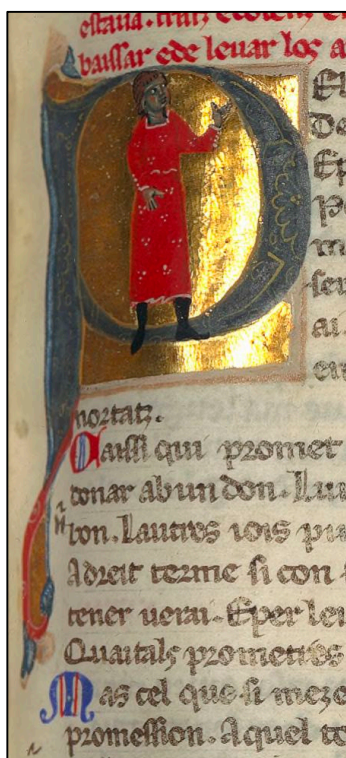 estaua. tratz
baissar ede leuar los a
El
De
Ep
P
m
sen
ai
en
mortatz.
Qaissi qui promet
donar abundon. Lau
bon. Lautres uos pu
Adreit terme si con
tener uerai. Eper leu
Quaitals prometres
Mas cel que si meze
promession. Aquel to